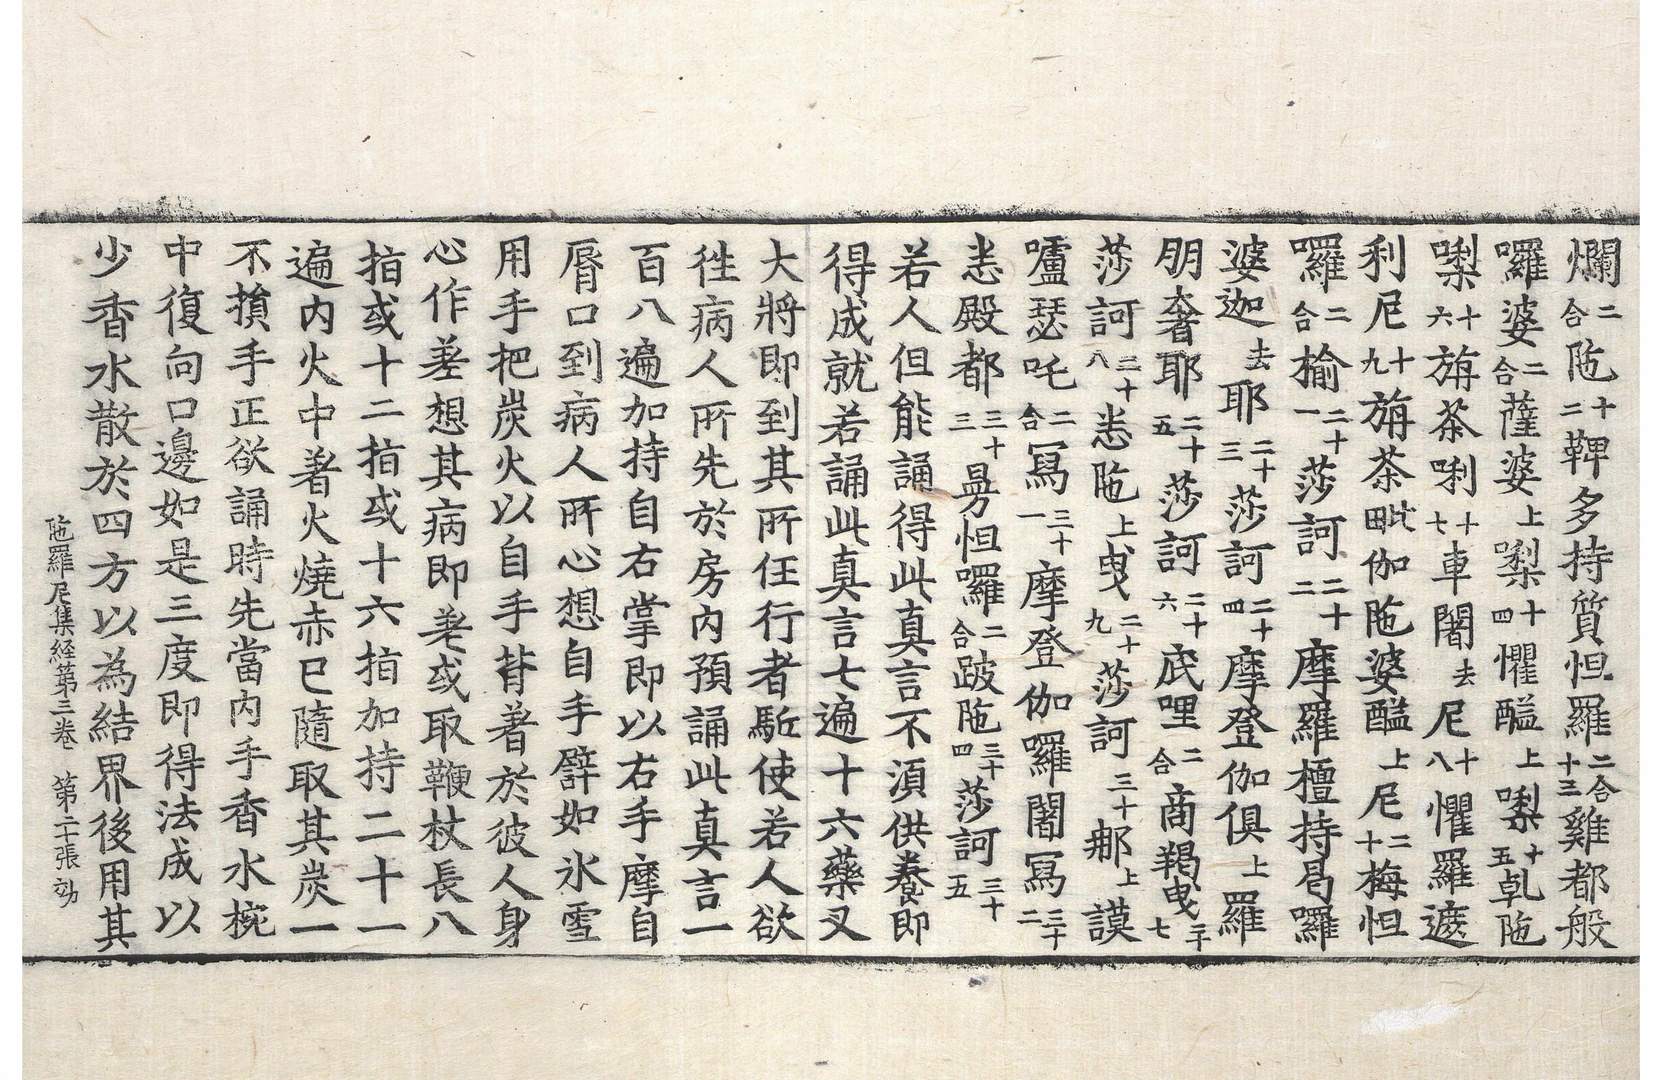 爛二合陁十二鞞多持質怛羅二合十三雞都般
囉婆二合薩婆上㗚十四懼醯上㗚十五乹陁
㗚十六旃茶唎十七車闍去尼十八懼羅遮
利尼十九旃茶毗伽陁婆醯上尼二十梅怛
囉二合揄二十一莎訶二十二摩羅檀持曷囉
婆迦去耶二十三莎訶二十四摩登伽俱上羅
朋奢耶二十五莎訶二十六底哩二合商羯曳二十七
莎訶二十八恚陁上曳二十九莎訶三十那上謨
嚧瑟吒二合寫三十一摩登伽囉闍寫三十二
恚殿都三十三勇怛囉二合跛陁三十四莎訶三十五
若人但能誦得此真言不湏供養即
得成就若誦此真言七遍十六藥叉
大將即到其所任行者駈使若人欲
徃病人所先於房內預誦此真言一
百八遍加持自右掌即以右手摩自
脣口到病人所心想自手臂如氷雪
用手把炭火以自手背著於彼人身
心作差想其病即差或取鞭杖長八
指或十二指或十六指加持二十一
遍內火中著火燒赤已隨取其炭一
不損手正欲誦時先當內手香水椀
中復向口邊如是三度即得法成以
少香水散於四方以為結界後用其
陁羅尼集経第三卷 第二十張